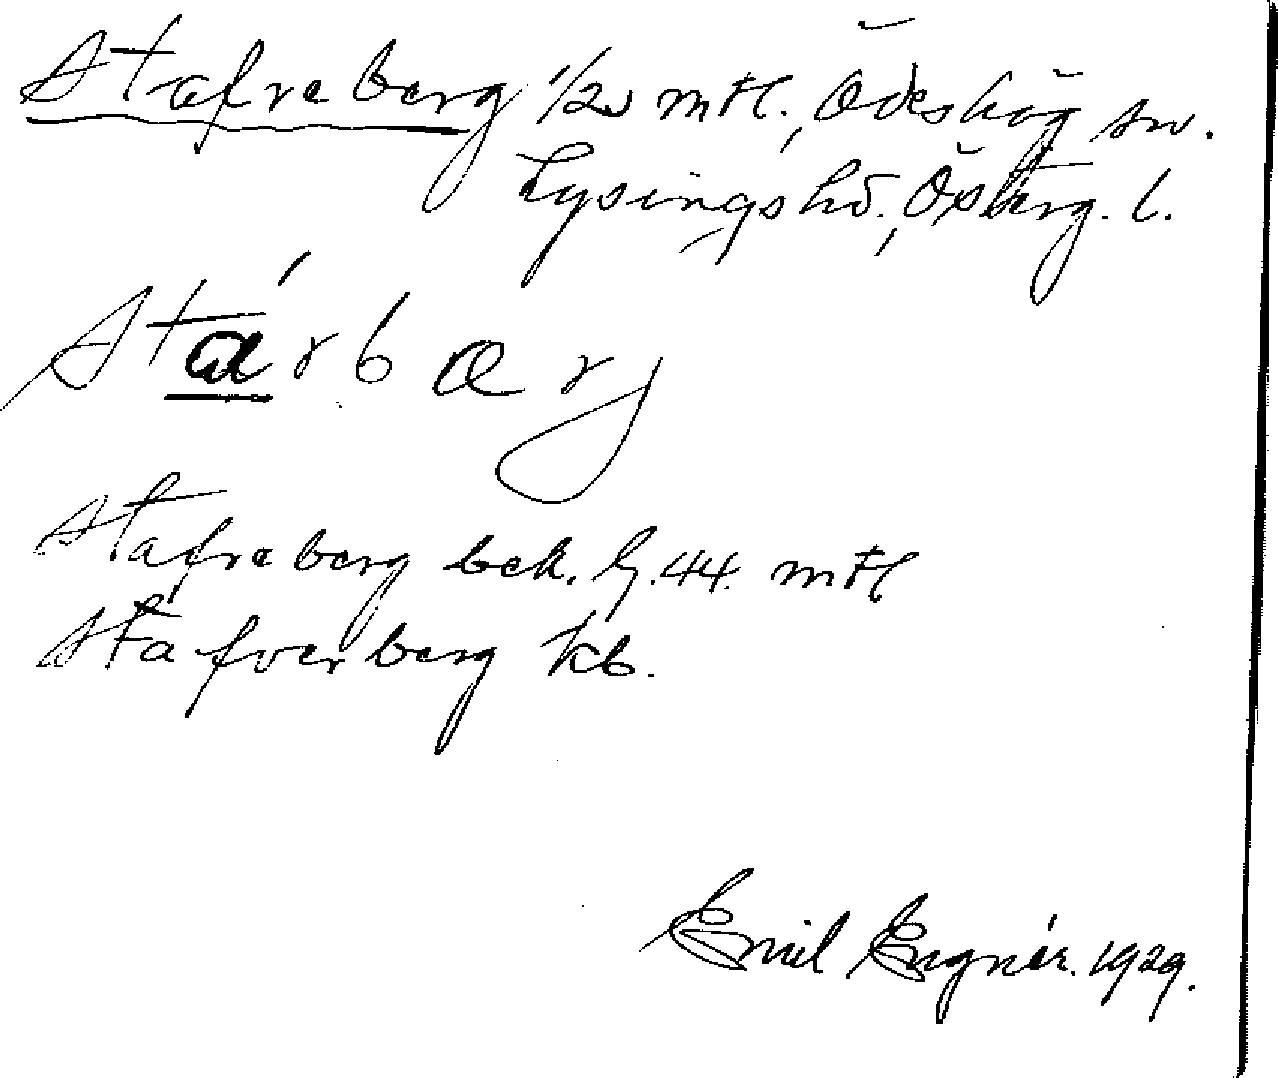 Stafreberg 1/2 mtl., Ödeshög sn.
Lysings hd., Österg. l.
Stárbærj
Stafreberg bek. Lj. 44. mtl
Stafverberg kb.
Emil Engnér. 1929.